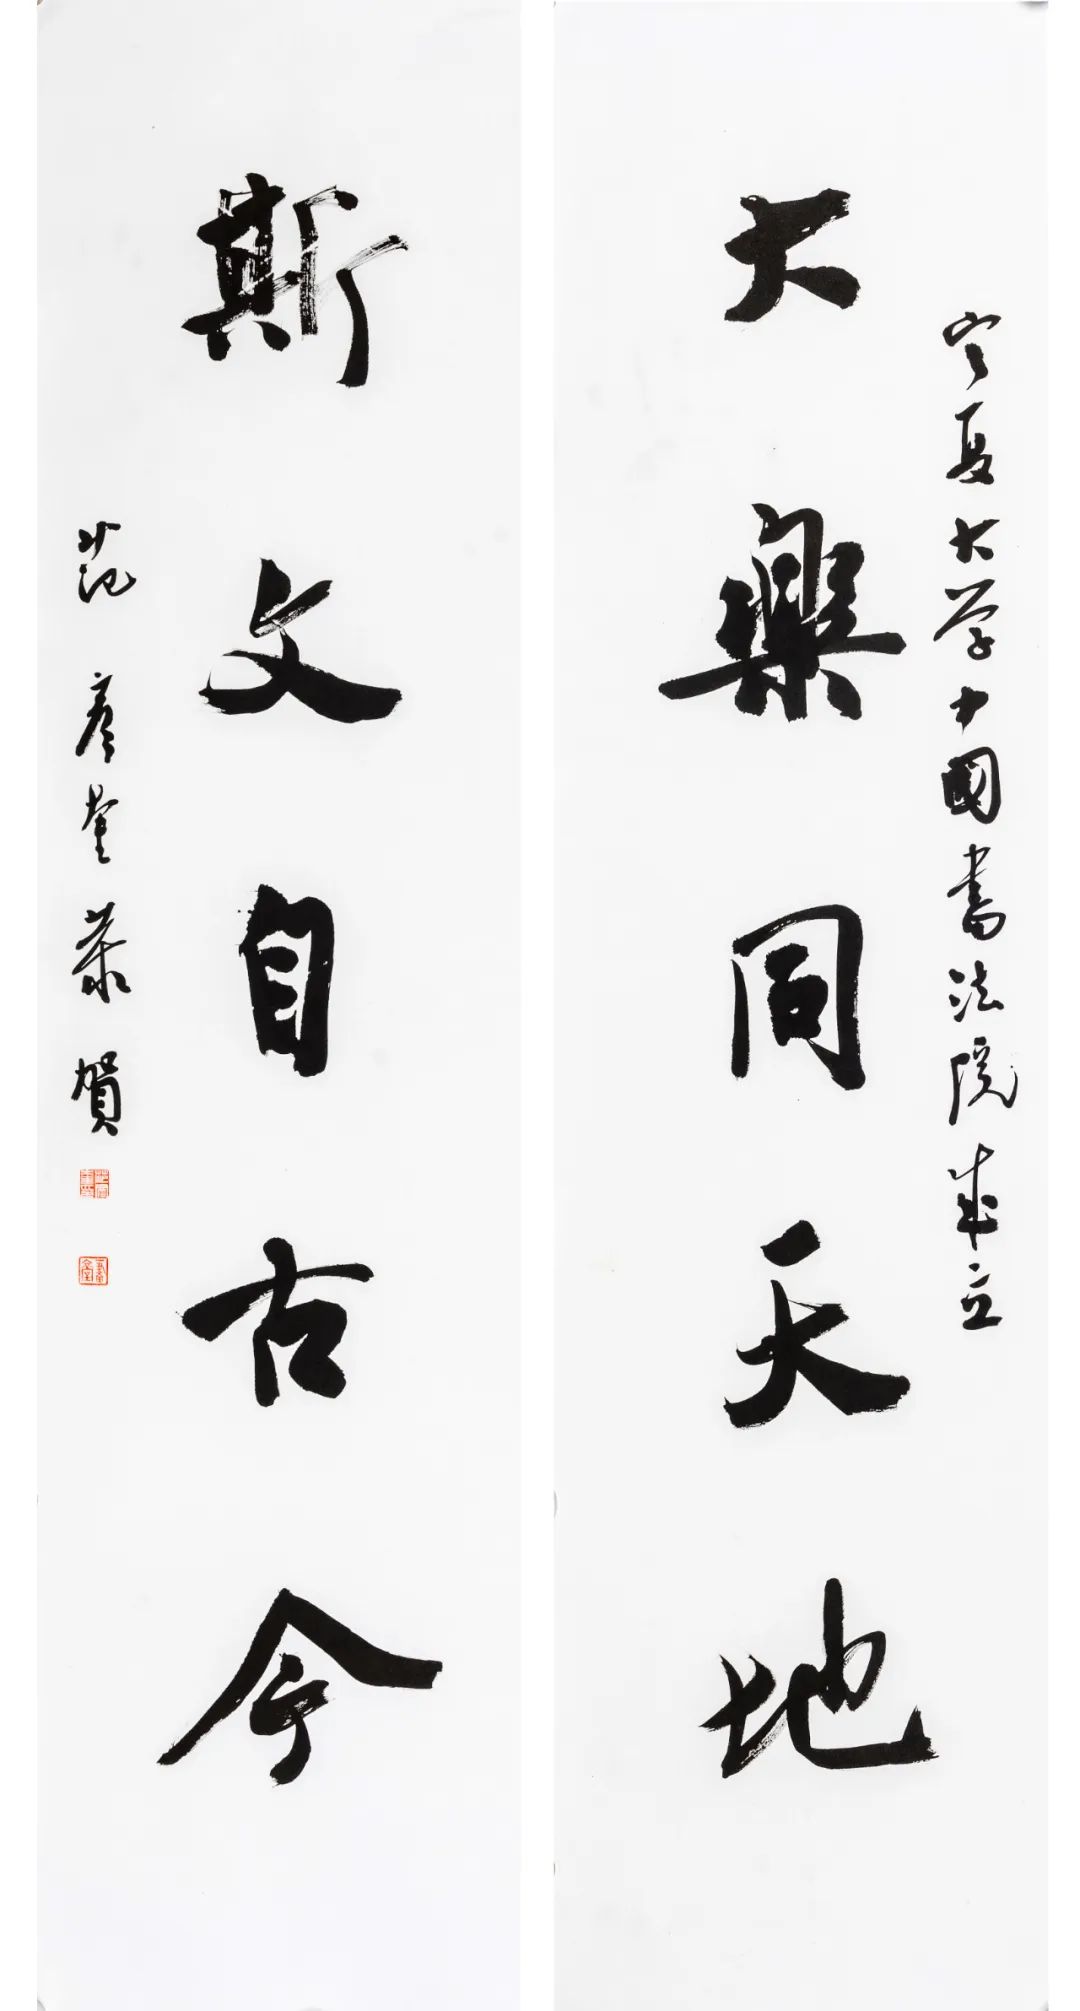 宁夏大学中國書法院成立
大樂同天地
斯文自古今
范彦奎恭賀